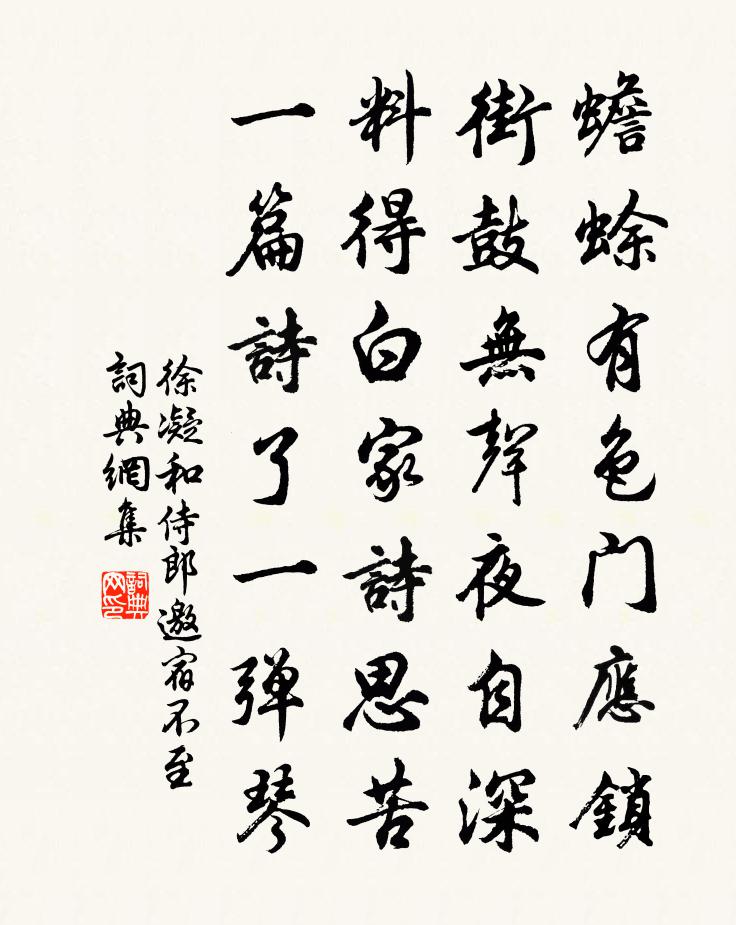 蟾蜍有色門應鎖
街鼓無聲夜自深
料得白家詩思苦
一篇詩了一弹琴
徐凝和侍郎邀宿不至
詞典網集
詞典
网印